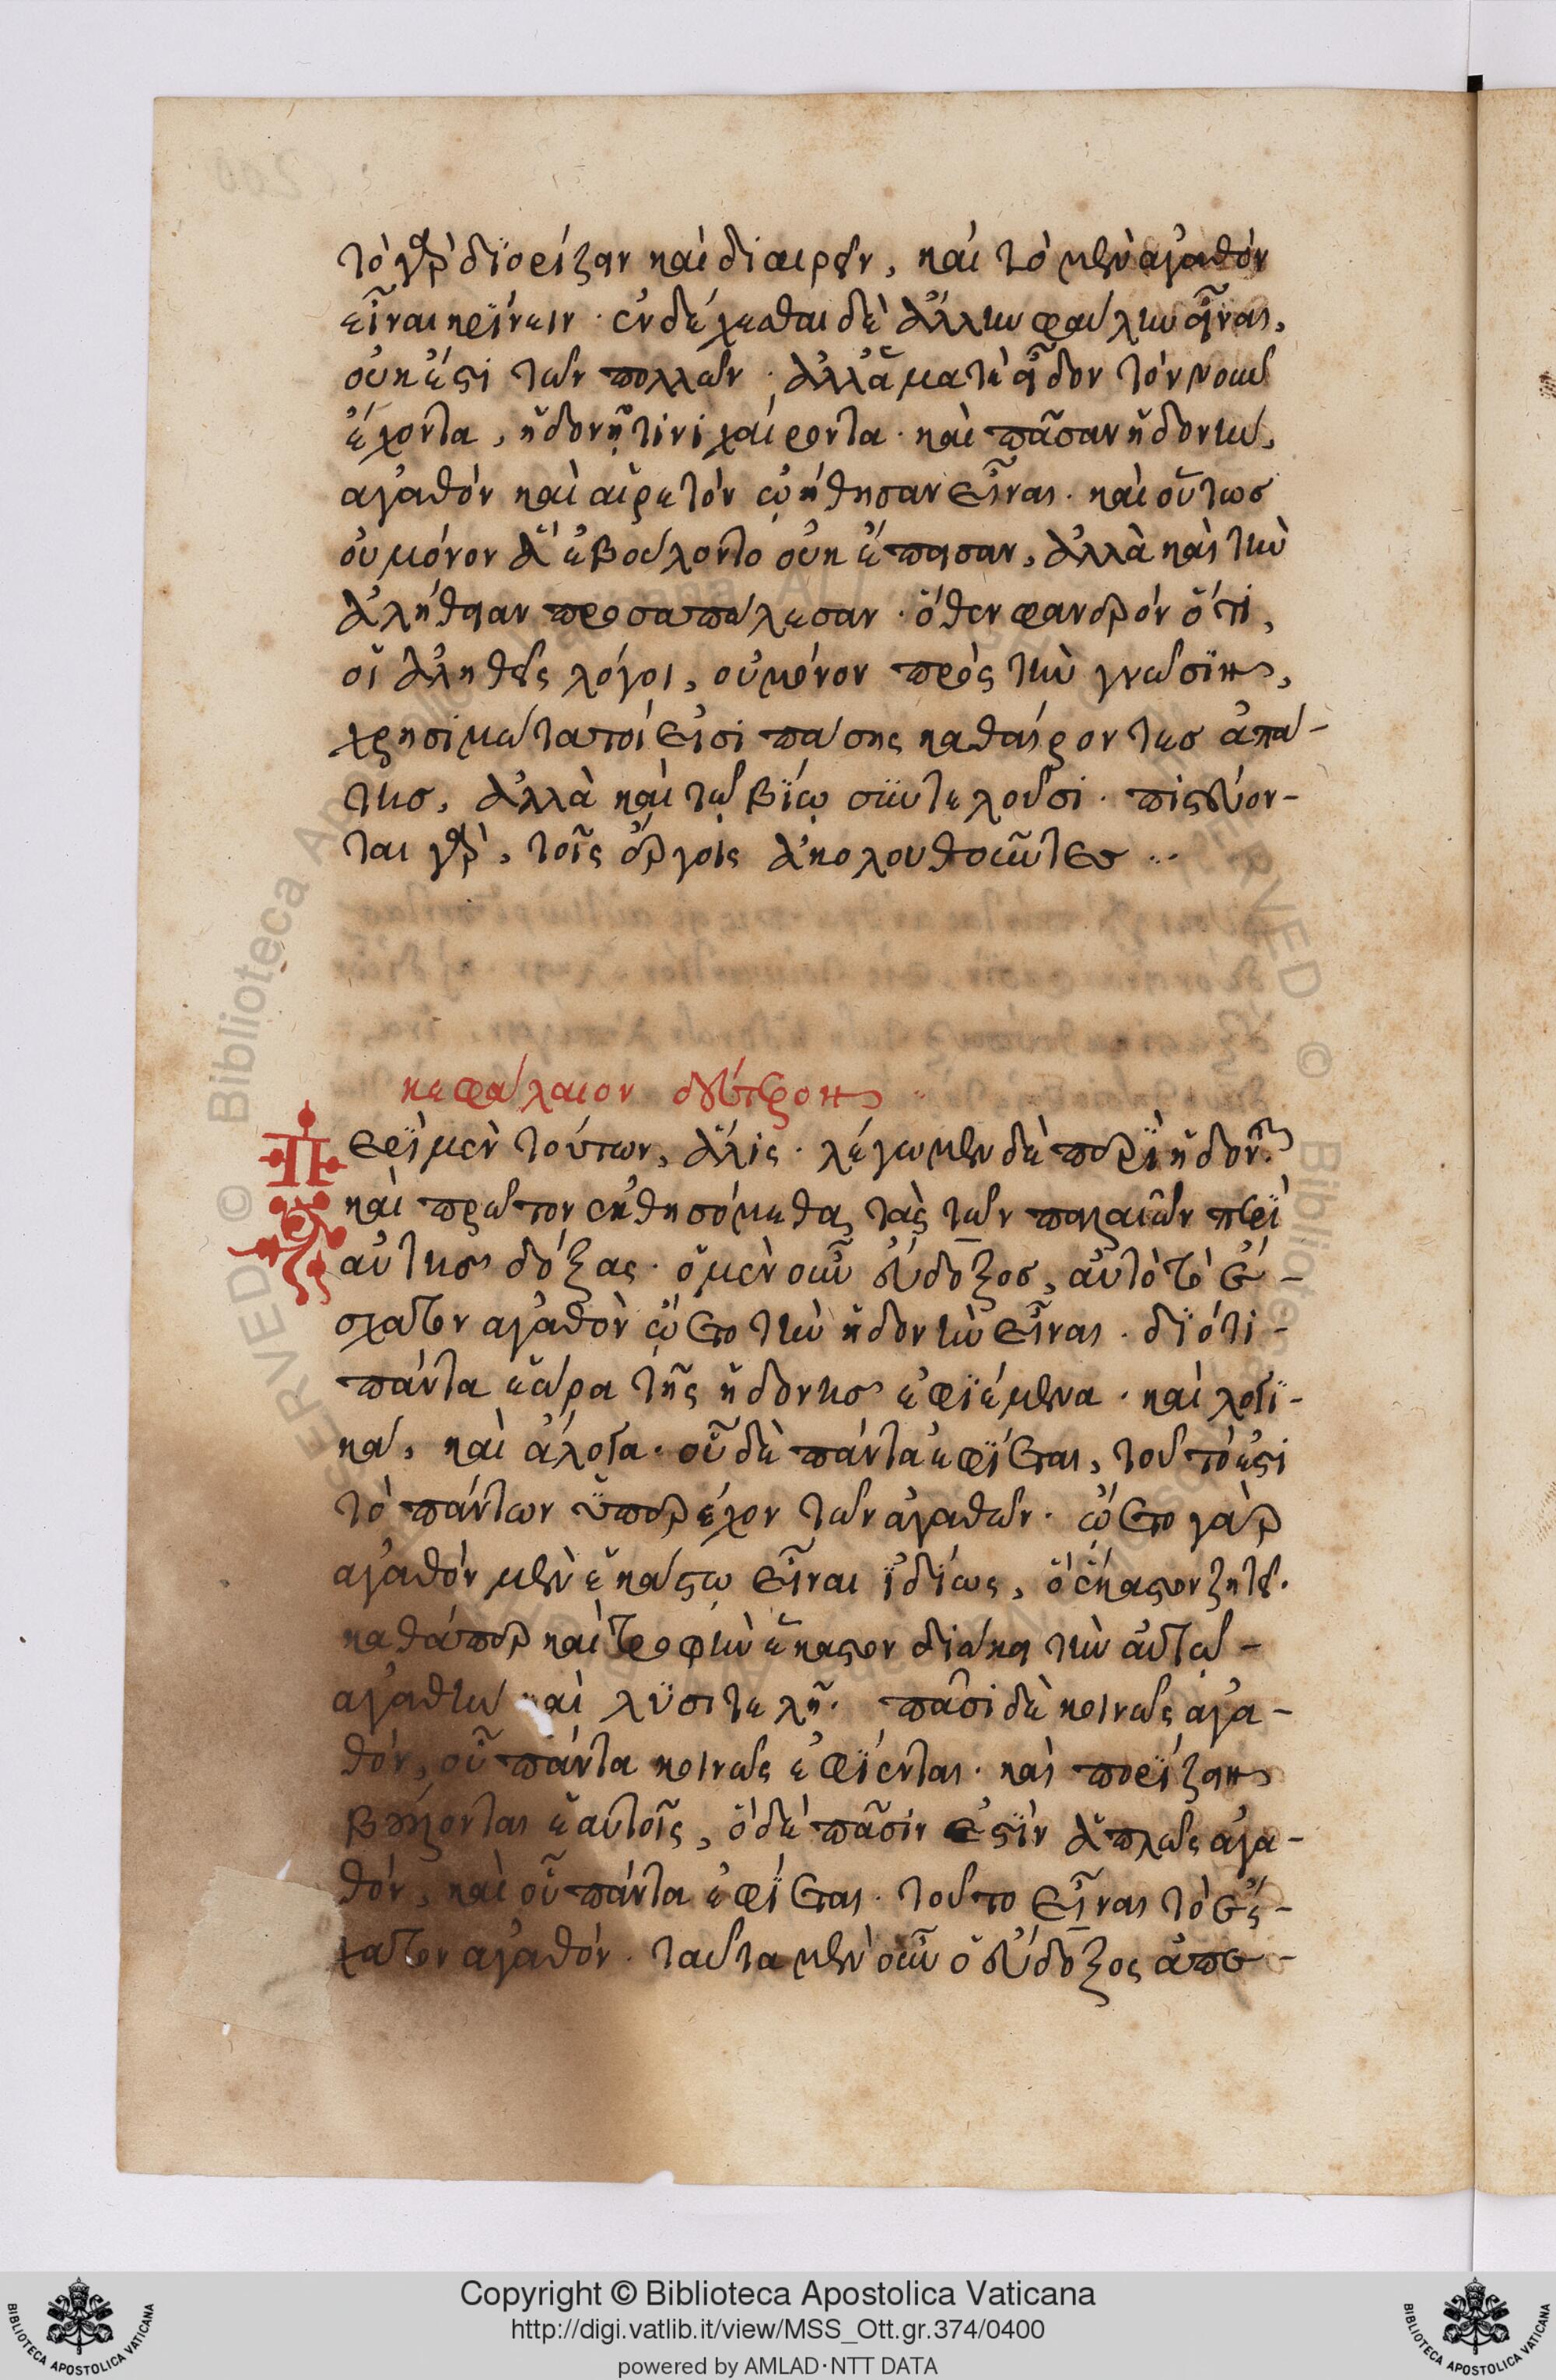 τὸ γὰρ διορίζειν καὶ διαιρεῖν, καὶ τὸ μὲν ἀγαθὸν
εἶναι κρίνειν· ἐνδέχεσθαι δὲ ἄλλην φαύλην εἶναι,
οὐκ ἔστι τῶν πολλῶν· ἀλλ' ἅμα τὲ εἶδον τὸν νοῦν
ἔχοντα, ἡδονῇ τινὶ χαίροντα· καὶ πᾶσαν ἡδονὴν,
ἀγαθὸν καὶ αἱρετὸν ᾠήθησαν εἶναι· καὶ οὕτως
οὐ μόνον ἃ ἐβούλοντο οὐκ ἔπεισαν, ἀλλὰ καὶ τὴν
ἀλήθειαν προσαπώλεσαν· ὅθεν φανερὸν ὅτι,
οἱ ἀληθεῖς λόγοι, οὐ μόνον πρὸς τὴν γνῶσιν,
χρησιμώτατοί εἰσι πάσης καθαίροντες ἀπά-
της, ἀλλὰ καὶ τῷ βίῳ συντελοῦσι· πιστεύον-
ται γὰρ, τοῖς ἔργοις ἀκολουθοῦντες ..
κεφάλαιον δεύτερον ..
Περὶ μὲν τούτων, ἅλις· λέγωμεν δὲ περὶ ἡδονῆς·
καὶ πρῶτον ἐκθησόμεθα τὰς τῶν παλαιῶν περὶ
αὐτῆς δόξας· ὁ μὲν οὖν εὔδοξος, αὐτὸ τὸ ἔ-
σχατον ἀγαθὸν ᾤετο τὴν ἡδονὴν εἶναι· διότι
πάντα ἑώρα τῆς ἡδονῆς ἐφιέμενα· καὶ λογι-
κὰ, καὶ ἄλογα· οὗ δὲ πάντα ἐφίεται, τοῦτό ἐστι
τὸ πάντων ὑπερέχον τῶν ἀγαθῶν· ᾤετο γὰρ
ἀγαθὸν μὲν ἑκάστῳ εἶναι ἰδίως, ὃ ἕκαστον ζητεῖ·
καθάπερ καὶ τροφὴν ἕκαστον διώκει τὴν αὐτῷ
ἀγαθὴν καὶ λυσιτελῆ· πᾶσι δὲ κοινῶς ἀγα-
θὸν, οὗ πάντα κοινῶς ἐφίενται· καὶ πορίζειν
βούλονται ἑαυτοῖς, ὃ δὲ πᾶσίν ἐστιν ἁπλῶς ἀγα-
θὸν, καὶ οὗ πάντα ἐφίεται· τοῦτο εἶναι τὸ ἔσ-
χατον ἀγαθόν· ταῦτα μὲν οὖν ὁ εὔδοξος ἀπε-
Copyright © Biblioteca Apostolica Vaticana
http://digi.vatlib.it/view/MSS_Ott.gr.374/0400
powered by AMLAD·NTT DATA
BIBLIOTECA APOSTOLICA VATICANA
BIBLIOTECA APOSTOLICA VATICANA